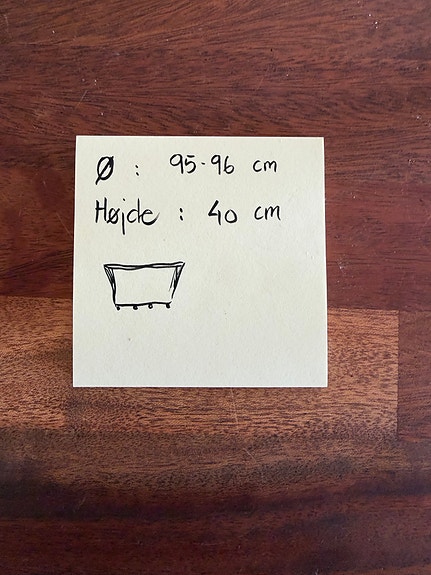 Ø : 95-96 cm
Højde : 40 cm